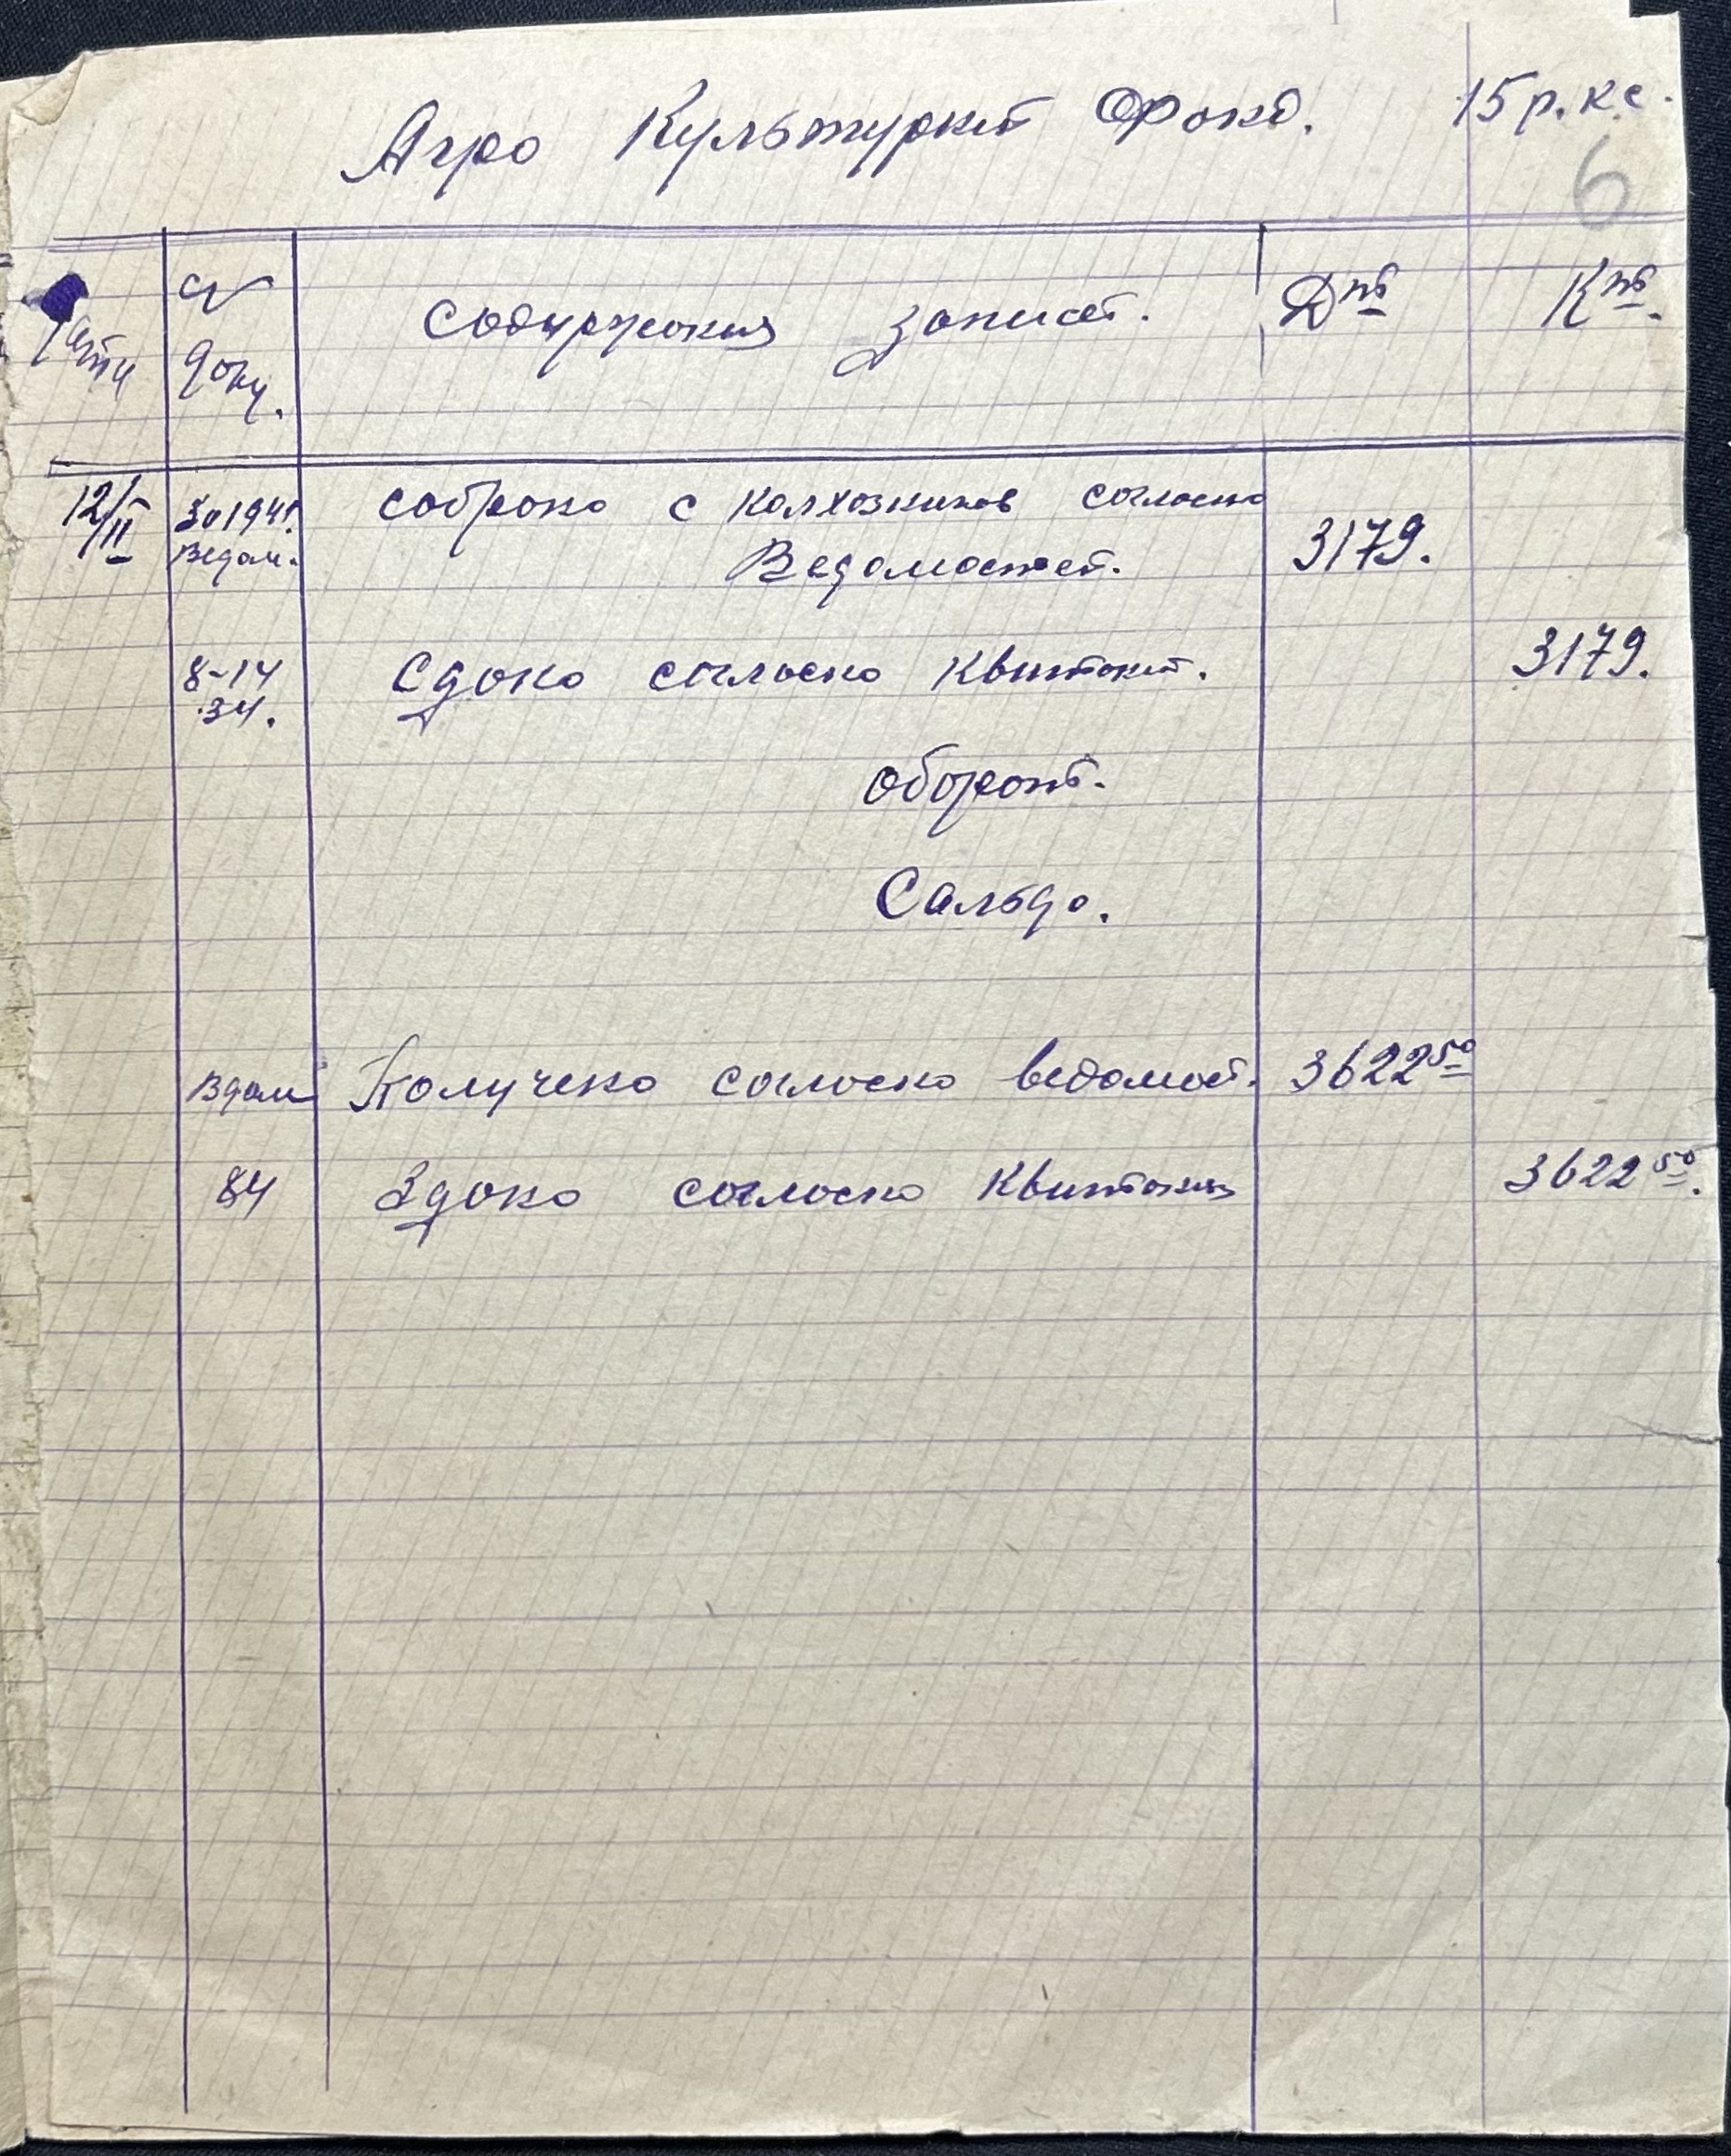 Агро Культурний Фонд. 15 р. кс.
6
№ Содержания записей. Д-ть К-ть.
доку.
12/II За 1941. Собрано с Колхозников согласно
Ведом. Ведомостей. 3179.
8-14 Сдано согласно Квитаний. 3179.
34.
Оборот.
Сальдо.
Вдом Получено согласно ведомост. 3622 50
84 Здано согласно Квитания 3622 50.